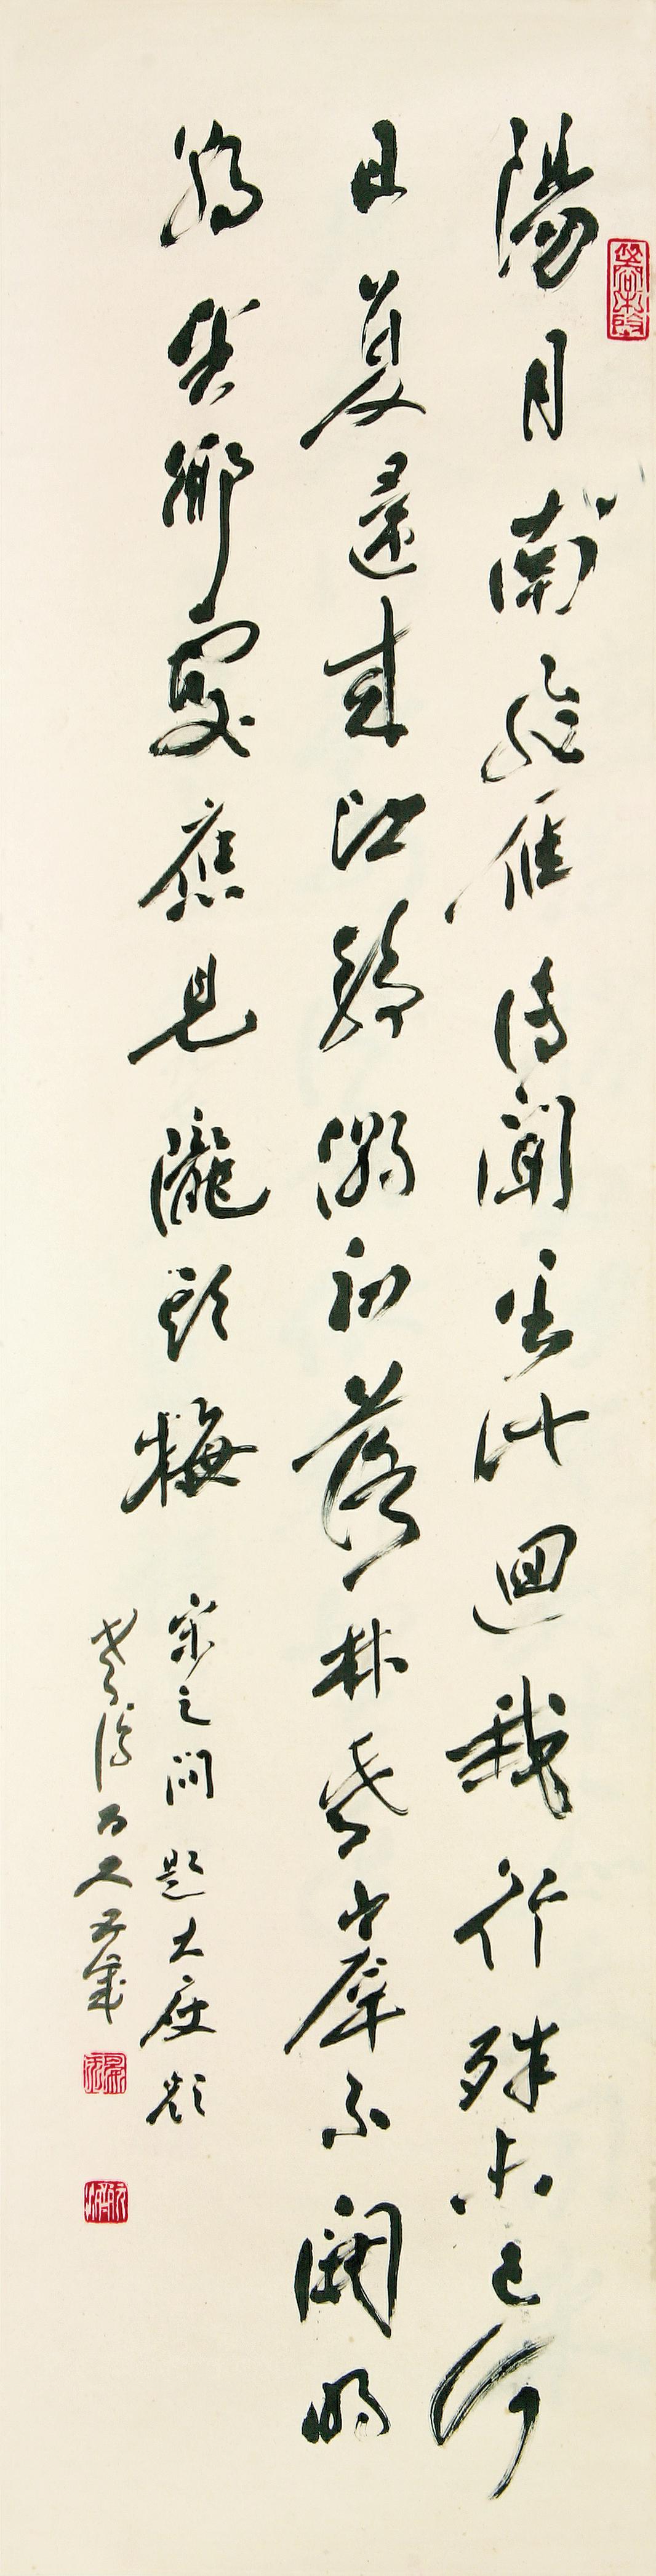 陽月南飛雁傳聞至此迴我行殊未已何
日复還來江靜潮初落林昏瘴不開明
朝望鄉處應見隴頭梅
宋之問題大庾嶺
老濟百又五歲